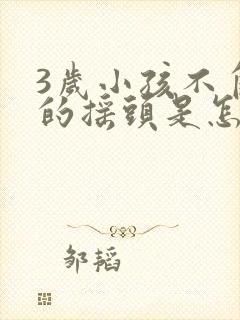 3歲小孩不
的摇頭是怎
邹韬